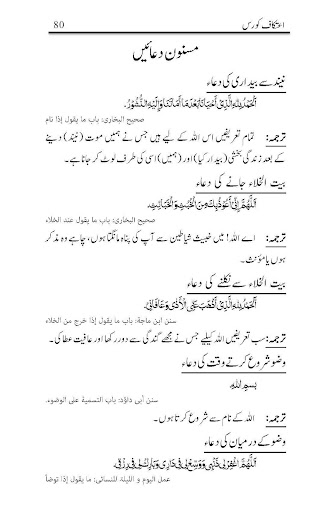 80 اعتکاف کورس
مسنون دعائیں
نیند سے بیداری کی دعاء
اَلْحَمْدُ لِلّٰهِ الَّذِيْ اَحْيَانَا بَعْدَ مَا اَمَاتَنَا وَاِلَيْهِ النُّشُوْرُ۔
صحيح البخاری: باب ما يقول إذا نام
ترجمہ: تمام تعریفیں اس اللہ کے لیے ہیں جس نے ہمیں موت (نیند) دینے
کے بعد زندگی بخشی (بیدار کیا) اور (ہمیں) اسی کی طرف لوٹ کر جانا ہے۔
بیت الخلاء جانے کی دعاء
اَللّٰهُمَّ اِنِّيْ اَعُوْذُ بِكَ مِنَ الْخُبُثِ وَالْخَبَائِثِ
صحيح البخاری: باب ما يقول عند الخلاء
ترجمہ: اے اللہ! میں خبیث شیاطین سے آپ کی پناہ مانگتا ہوں، چاہے وہ مذکر
ہوں یا مؤنث۔
بیت الخلاء سے نکلنے کی دعاء
اَلْحَمْدُ لِلّٰهِ الَّذِيْ اَذْهَبَ عَنِّي الْاَذٰى وَعَافَانِيْ
سنن ابن ماجة: باب ما يقول إذا خرج من الخلاء
ترجمہ: سب تعریفیں اللہ کیلیے جس نے مجھے گندگی سے دور رکھا اور عافیت عطا کی۔
وضو شروع کرتے وقت کی دعاء
بِسْمِ اللهِ
سنن أبی داؤد: باب التسمية على الوضوء.
ترجمہ: اللہ کے نام سے شروع کرتا ہوں۔
وضو کے درمیان کی دعاء
اَللّٰهُمَّ اغْفِرْ لِيْ ذَنْبِيْ وَوَسِّعْ لِيْ فِيْ دَارِيْ وَبَارِكْ لِيْ فِيْ رِزْقِيْ۔
عمل اليوم و الليلة للنسائی: ما يقول إذا توضأ